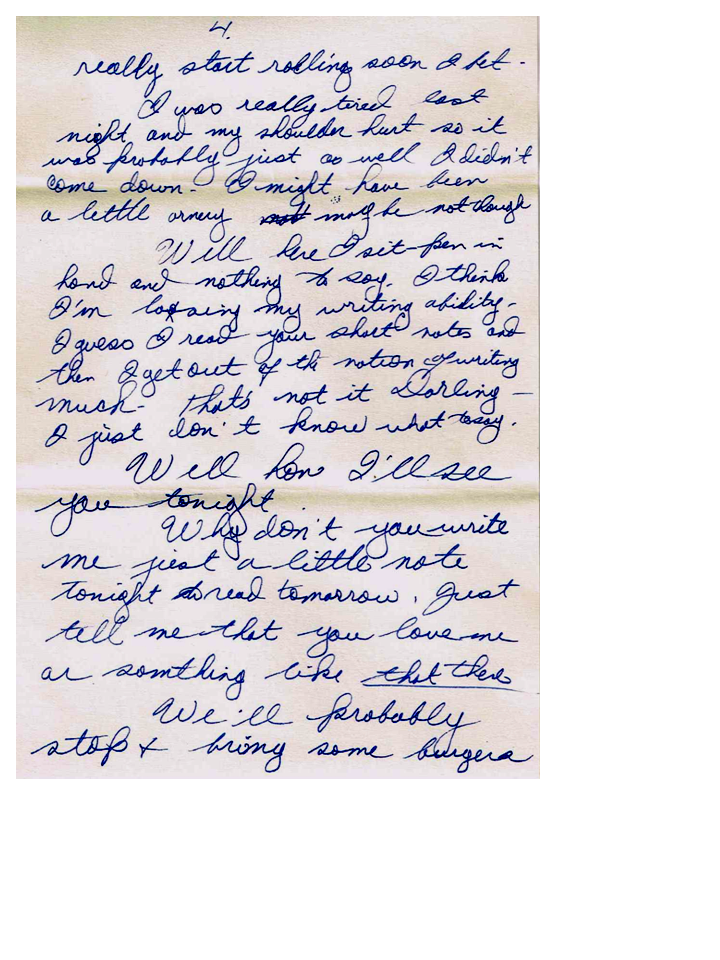 4.
really start rolling soon I bet -
I was really tired last
night and my shoulder hurt so it
was probably just as well I didn't
come down - I might have been
a little ornery maybe not though
Well here I sit - pen in
hand and nothing to say. I think
I'm loosing my writing ability -
I guess I read your short notes and
then I get out of the notion of writing
much - That's not it Darling -
I just don't know what to say.
Well hon I'll see
you tonight.
Why don't you write
me just a little note
tonight to read tomorrow. Just
tell me that you love me
or somthing like that there
We'll probably
stop & bring some burgers